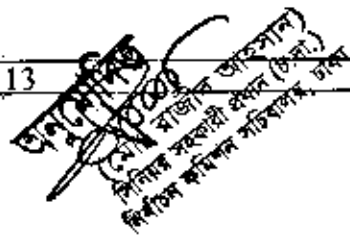 13
অনুমোদিত
সিনিয়র সহকারী প্রধান (চ.দা.)
নির্বাচন কমিশন সচিবালয়, ঢাকা